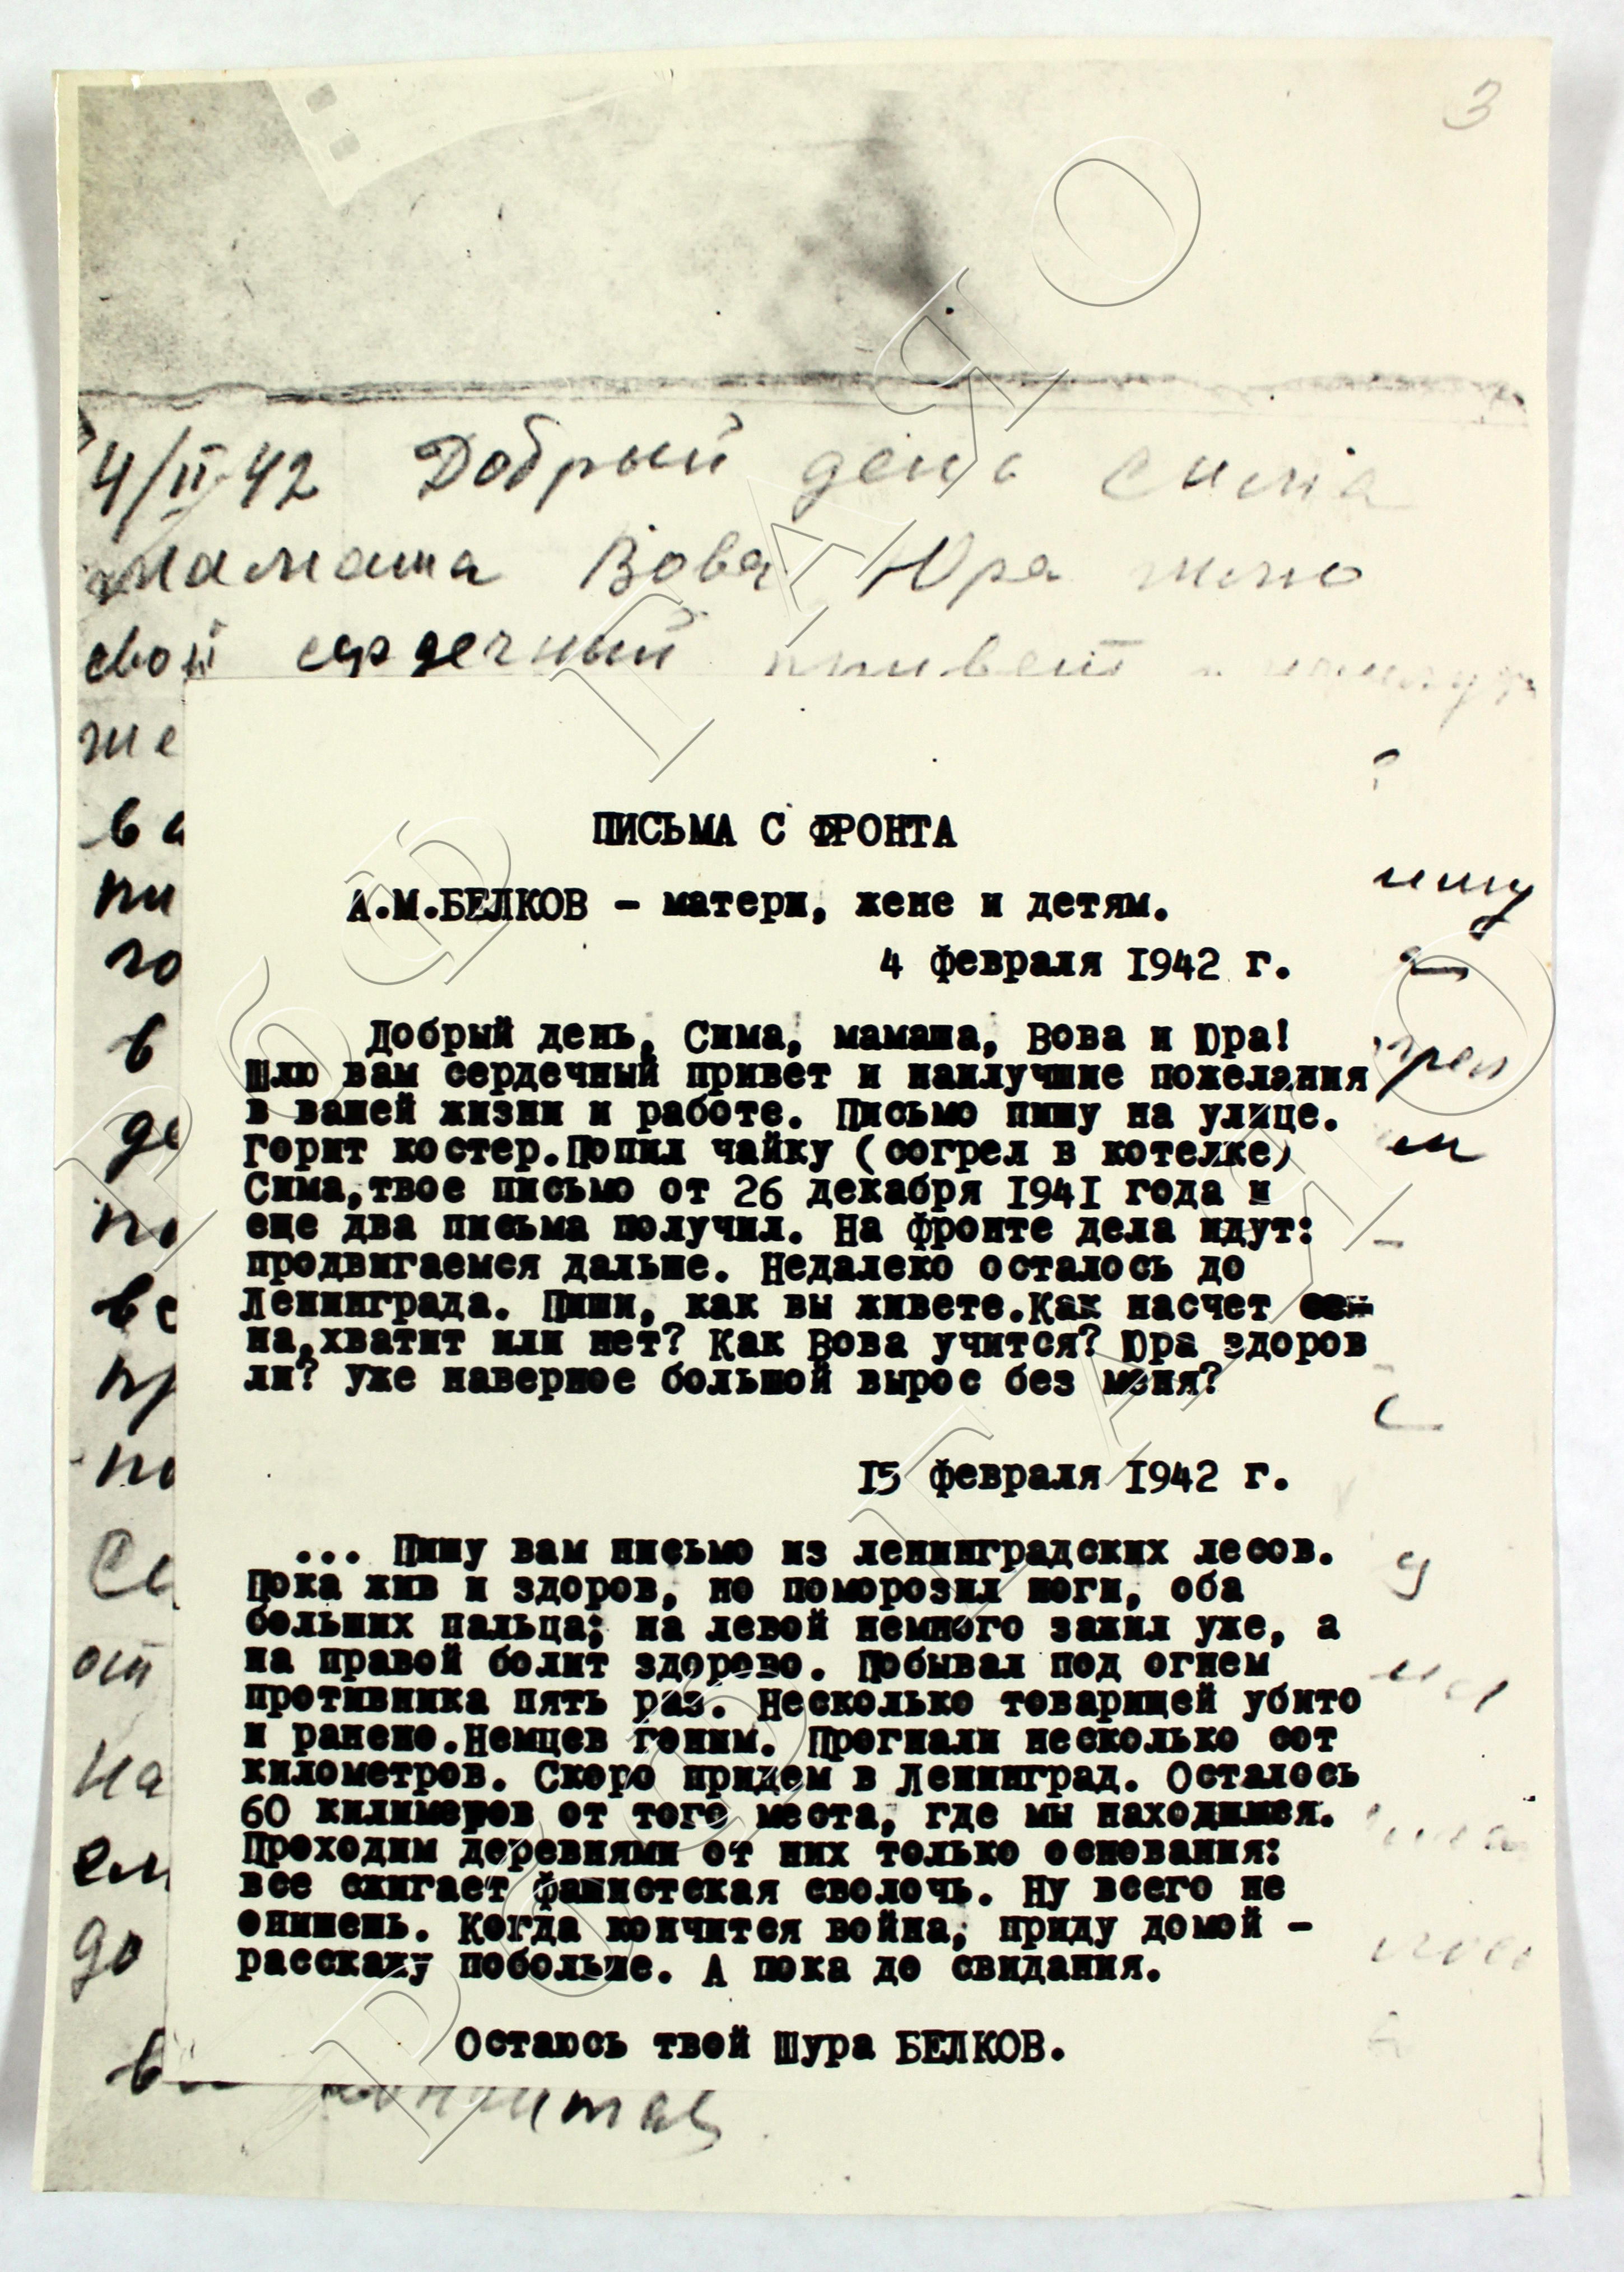 3
4/II 42 Добрый день Сима
мамаша Вова Юра шлю
свой сердечный привет и
же
ва
пи
го
в
де
по
ве
пр
по
Си
от
На
ем
до
в
пишу
ПИСЬМА С ФРОНТА
А.М.БЕЛКОВ - матери, жене и детям.
4 февраля 1942 г.
Добрый день, Сима, мамаша, Вова и Юра!
Шлю вам сердечный привет и наилучшие пожелания
в вашей жизни и работе. Письмо пишу на улице.
Горит костер.Попил чайку (согрел в котелке)
Сима,твое письмо от 26 декабря 1941 года и
еще два письма получил. На фронте дела идут:
продвигаемся дальше. Недалеко осталось до
Ленинграда. Пиши, как вы живете.Как насчет сен
на,хватит или нет? Как Вова учится? Юра здоров
ли? уже наверное большой вырос без меня?
15 февраля 1942 г.
... Пишу вам письмо из ленинградских лесов.
Пока жив и здоров, но поморозил ноги, оба
больших пальца; на левой немного зажил уже, а
на правой болит здорово. Побывал под огнем
противника пять раз. Несколько товарищей убито
и ранено.Немцев гоним. Прогнали несколько сот
километров. Скоро придем в Ленинград. Осталось
60 килимеров от того места, где мы находимся.
Проходим деревнями от них только основания:
все сжигает фашистская сволочь. Ну всего не
опишешь. Когда кончится война, приду домой -
расскажу побольше. А пока до свидания.
Остаюсь твой Шура БЕЛКОВ.
РГАЯО